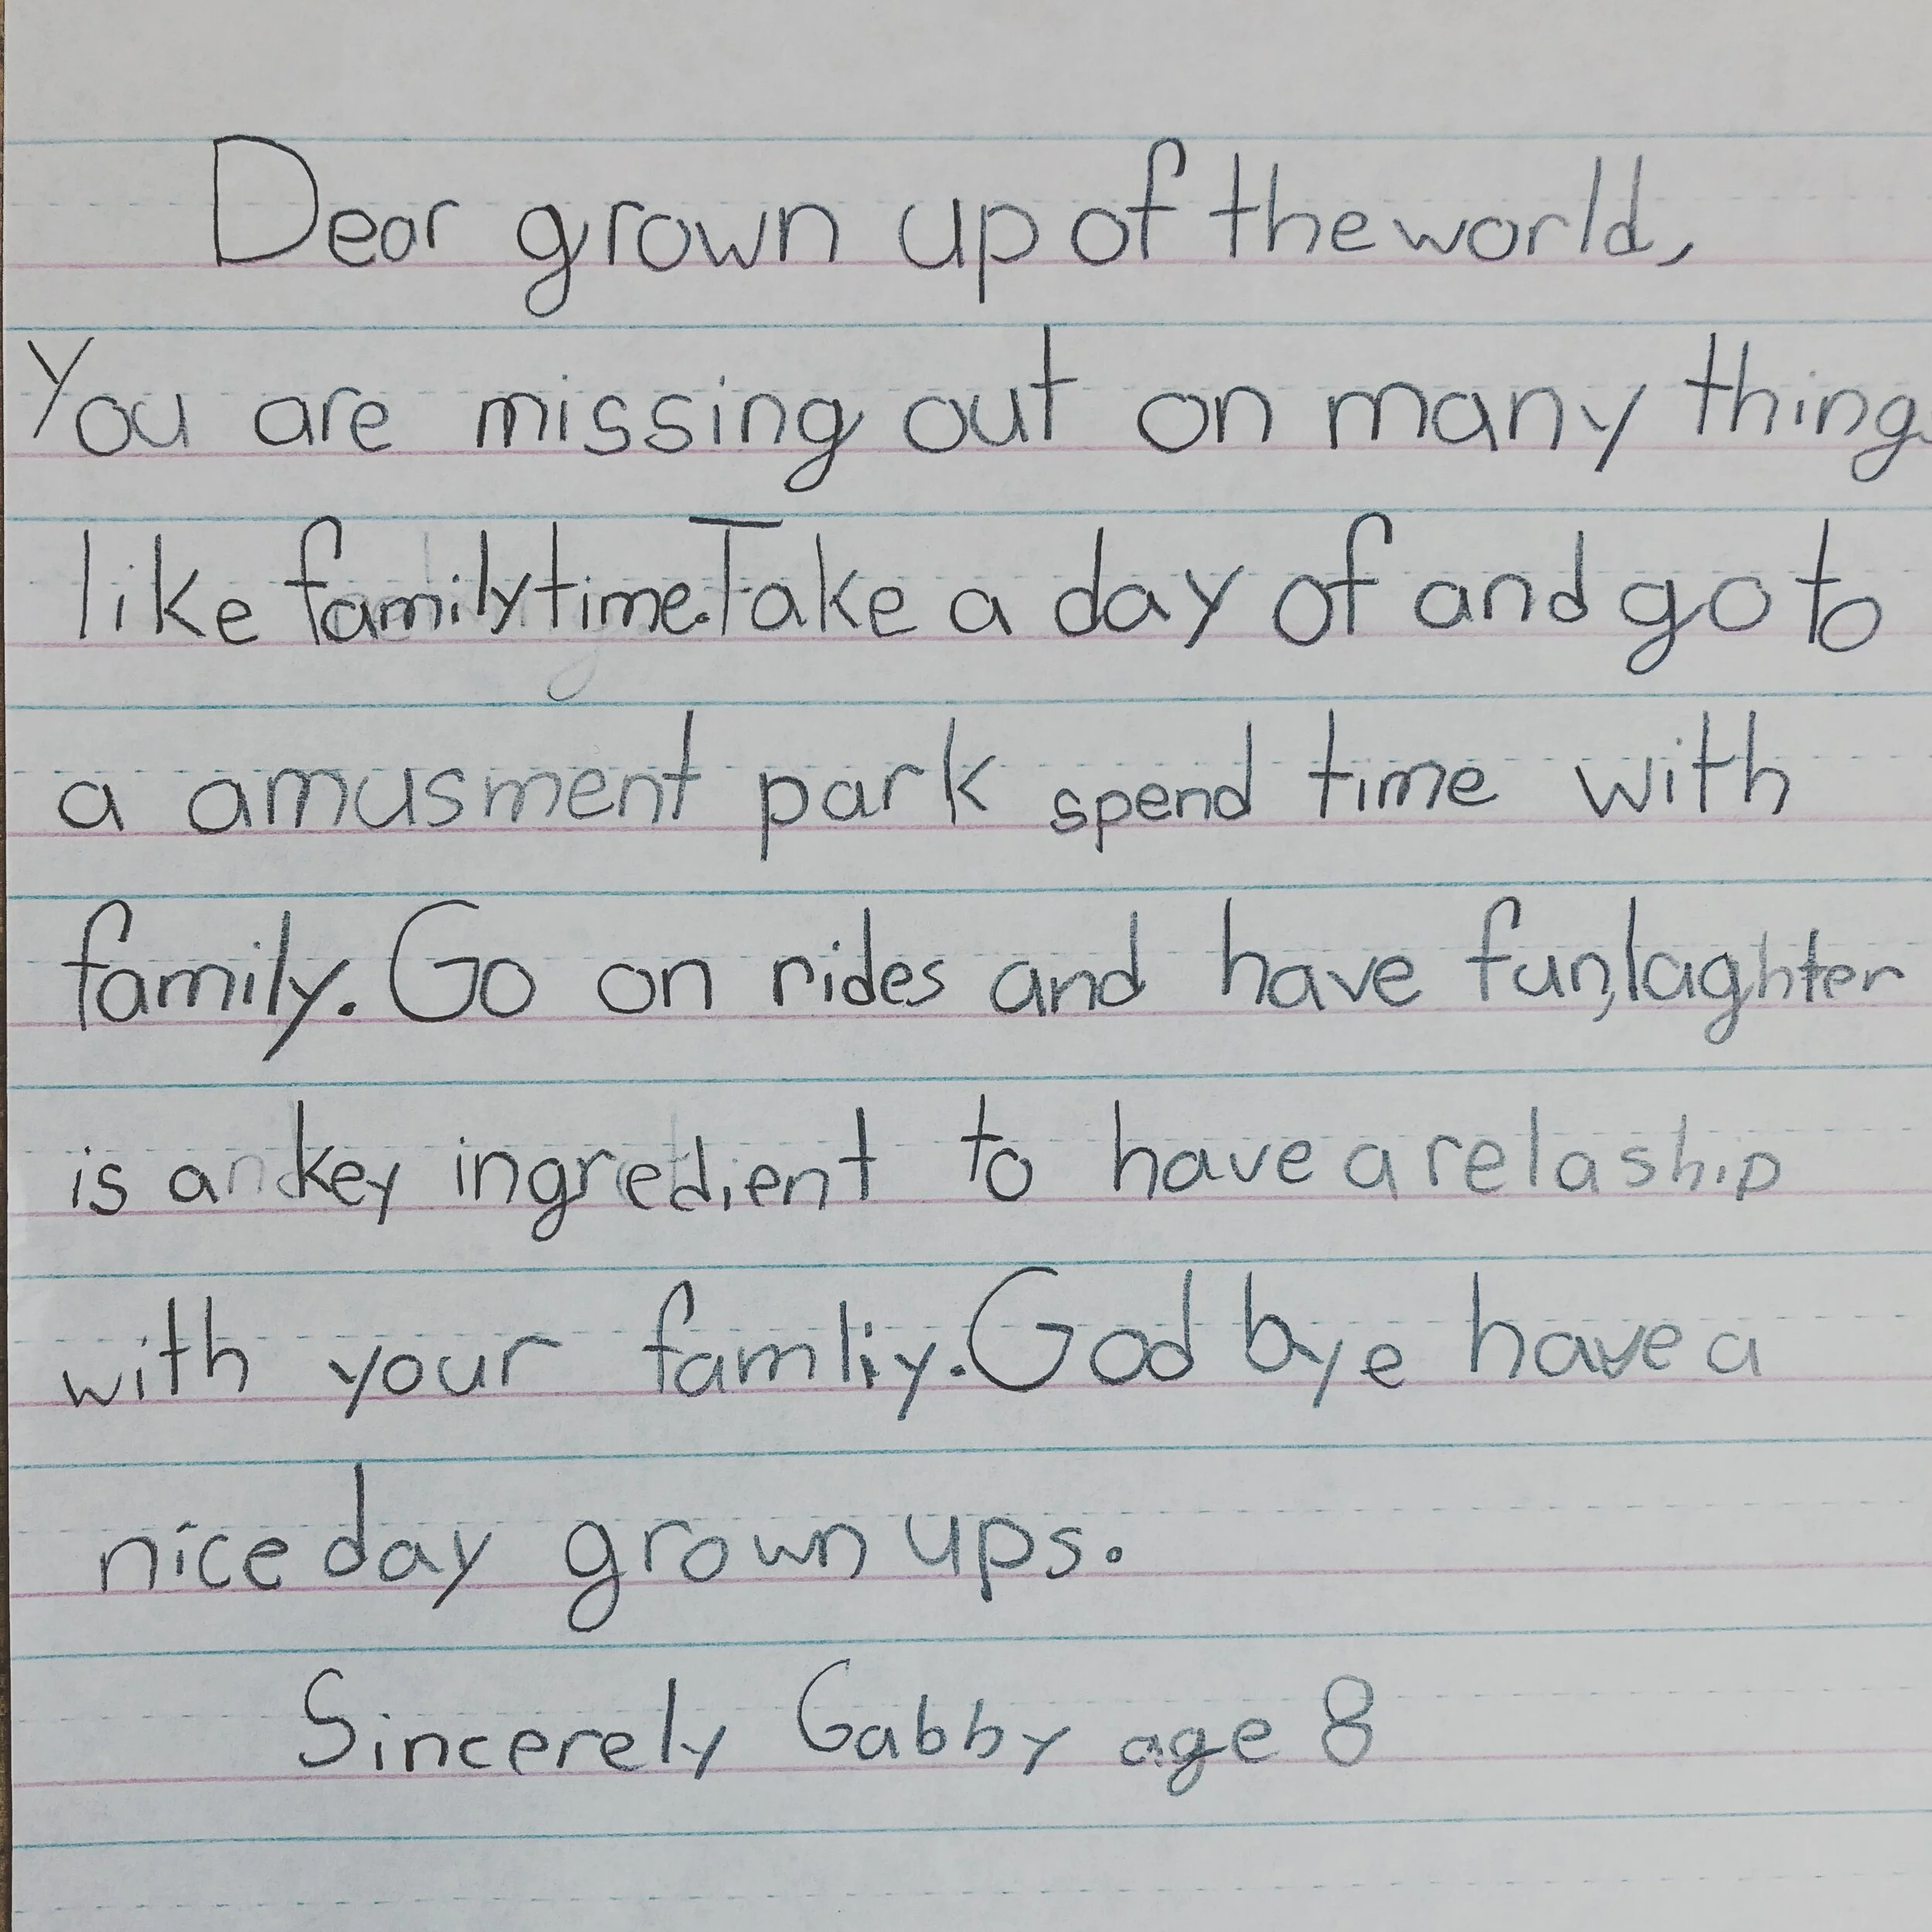 Dear grown up of the world,
You are missing out on many thing
like family time. Take a day of and go to
a amusment park spend time with
family. Go on rides and have fun, laghter
is a key ingredient to have a relaship
with your famliy. God bye have a
nice day grown ups.
Sincerely Gabby age 8